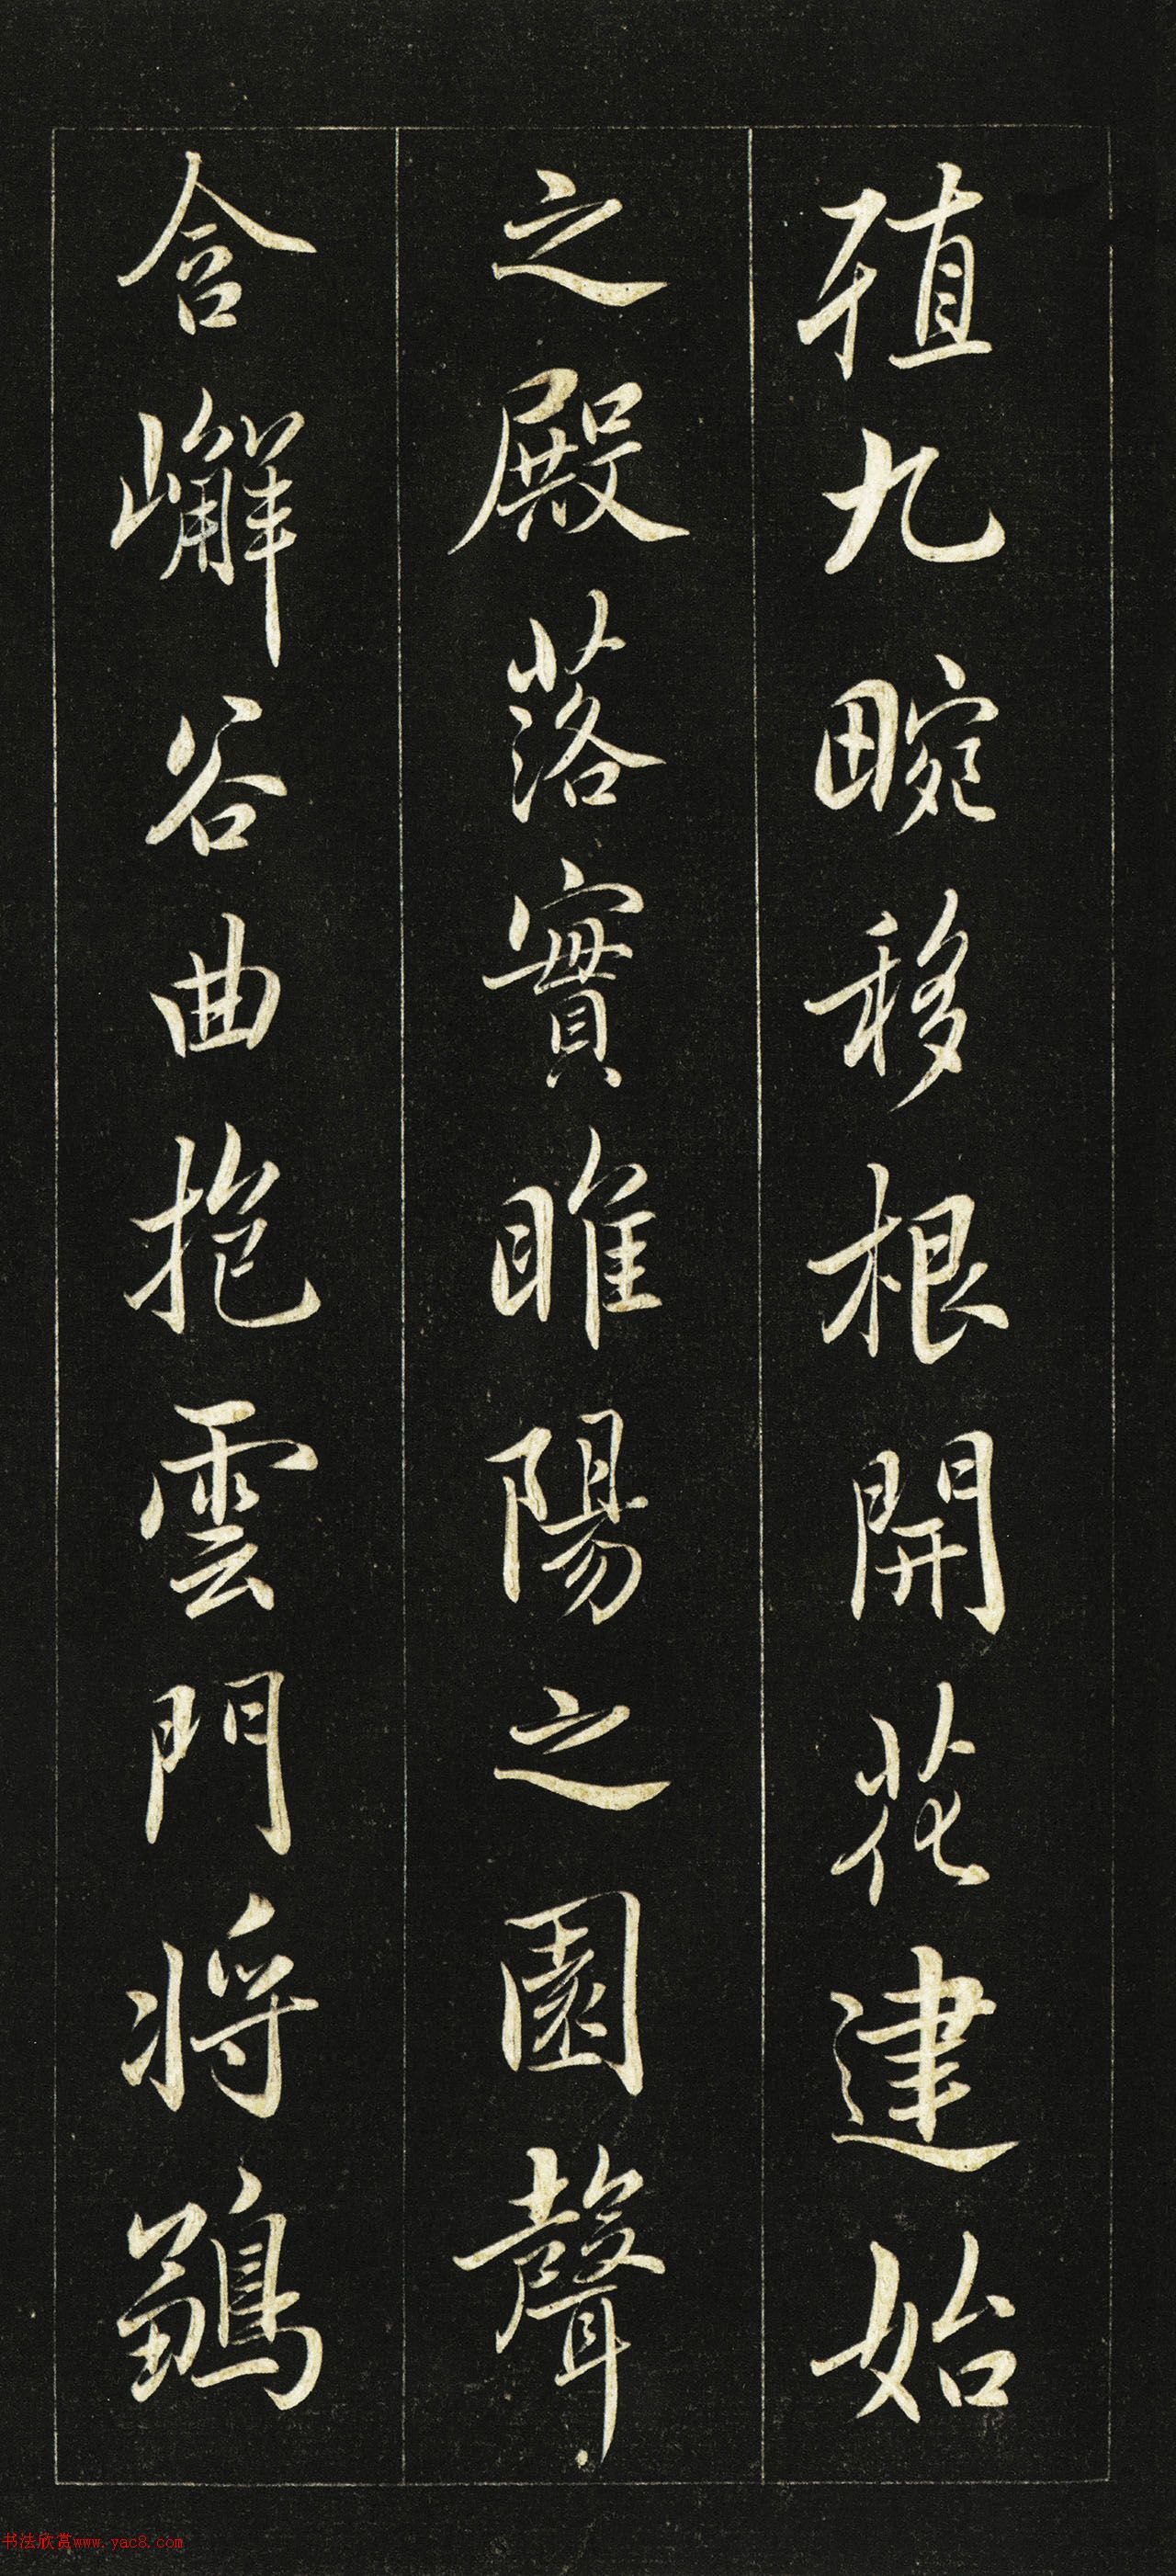 殖九畹移根開花建始
之殿落實睢陽之園聲
含嶰谷曲抱雲門將鶵
书法欣赏www.yac8.com